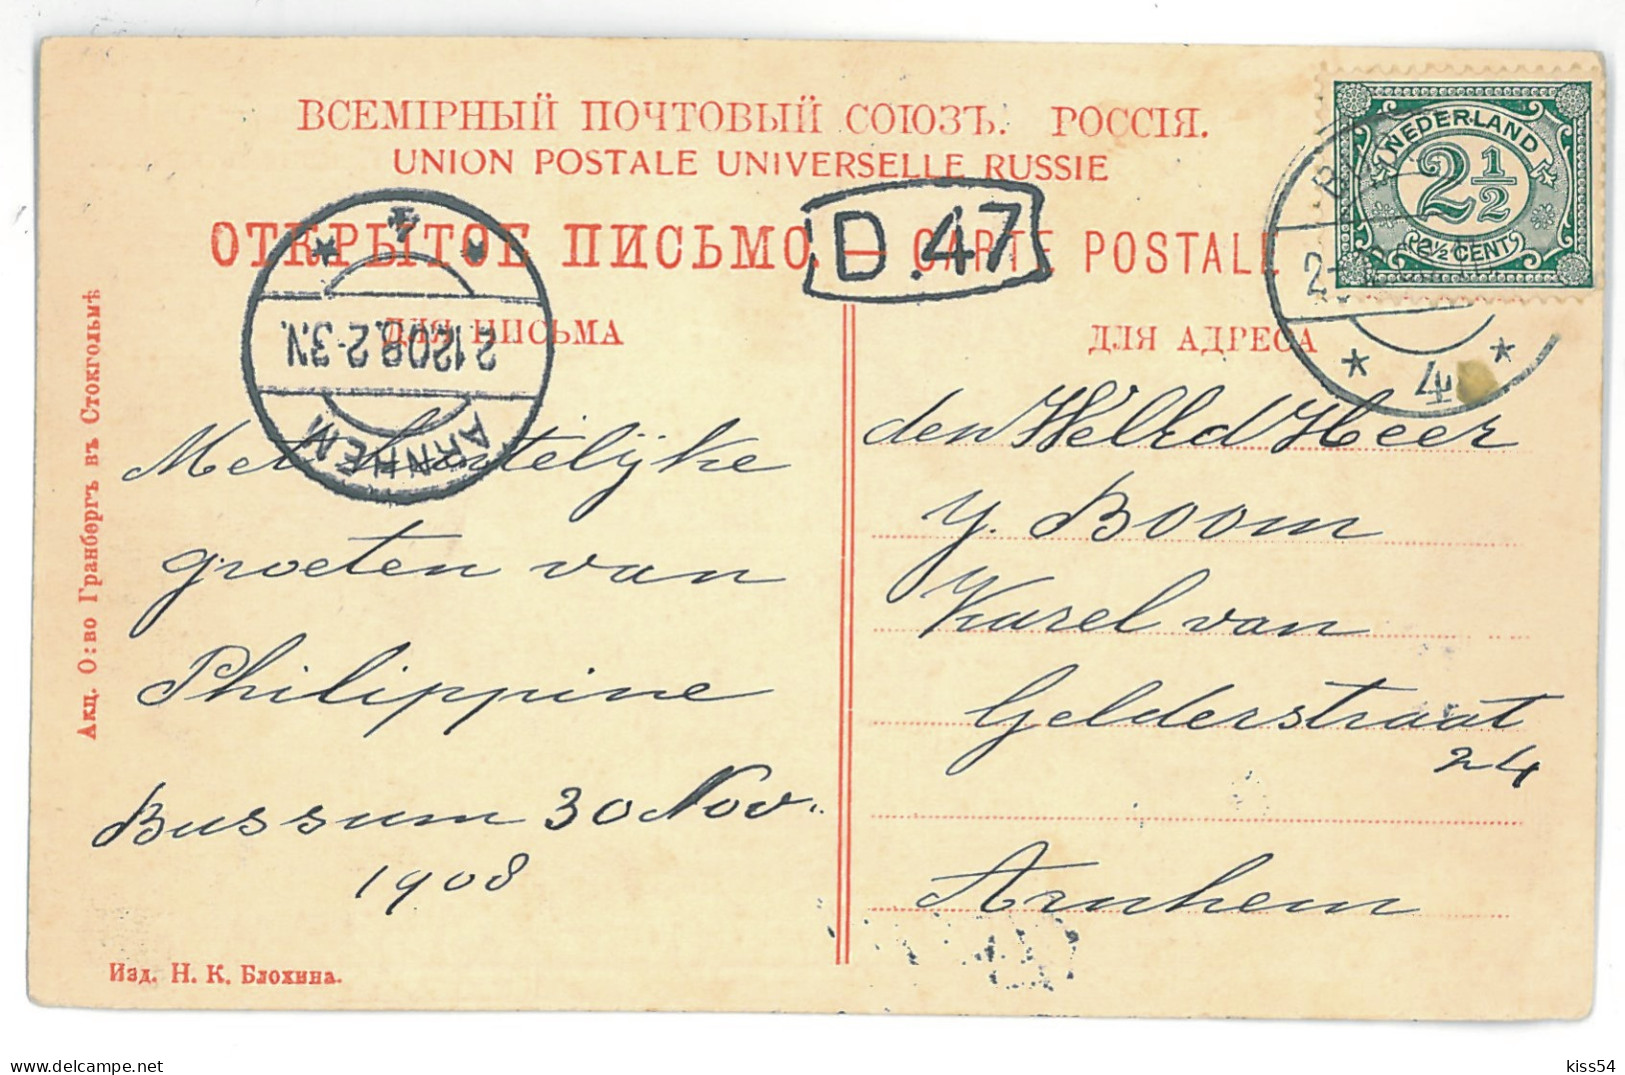 ВСЕМІРНЫЙ ПОЧТОВЫЙ СОЮЗЪ. РОССІЯ.
UNION POSTALE UNIVERSELLE RUSSIE
ОТКРЫТОЕ ПИСЬМО — CARTE POSTALE
D.47
ДЛЯ ПИСЬМА
ДЛЯ АДРЕСА
NEDERLAND
2½
2½ CENT
4
2.12.08.2-3.V.
ARNHEM
4
Met hartelijke
groeten van
Philippine
Bussum 30 Nov.
1908
den Heer
J. Boom
Karel van
Gelderstraat
24
Arnhem
Акц. О:во Гранбергъ въ Стокгольмѣ
Изд. Н. К. Блохина.
delcampe.net
kiss54